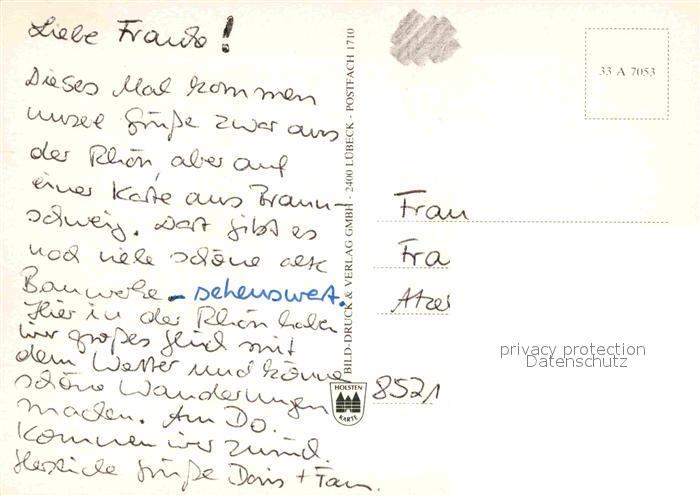 Liebe Frauke!
Dieses Mal kommen
unsere Grüße zwar aus
der Rhön, aber auf
einer Karte aus Braun-
schweig. Dort gibt es
noch viele schöne alte
Bauwerke - sehenswert.
Hier in der Rhön haben
wir großes Glück mit
dem Wetter und können
schöne Wanderungen
machen. Am Do.
kommen wir zurück.
Herzliche Grüße Doris + Fam.
BILD-DRUCK & VERLAG GMBH · 2400 LÜBECK · POSTFACH 1710
HOLSTEN
KARTE
33 A 7053
Frau
Fra
8521
privacy protection
Datenschutz